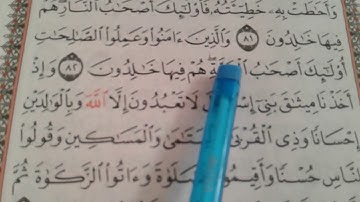 وَأَحَٰطَتْ بِهِۦ خَطِيٓـَٔتُهُۥ فَأُو۟لَٰٓئِكَ أَصْحَٰبُ ٱلنَّارِ هُمْ
فِيهَا خَٰلِدُونَ ٨١ وَٱلَّذِينَ ءَامَنُوا۟ وَعَمِلُوا۟ ٱلصَّٰلِحَٰتِ
أُو۟لَٰٓئِكَ أَصْحَٰبُ هُمْ فِيهَا خَٰلِدُونَ ٨٢ وَإِذْ
أَخَذْنَا مِيثَٰقَ بَنِىٓ لَا تَعْبُدُونَ إِلَّا ٱللَّهَ وَبِٱلْوَٰلِدَيْنِ
إِحْسَانًا وَذِى ٱلْقُرْبَىٰ وَٱلْمَسَٰكِينِ وَقُولُوا۟
لِلنَّاسِ حُسْنًا وَأَقِيمُوا۟ وَءَاتُوا۟ ٱلزَّكَوٰةَ ثُمَّ